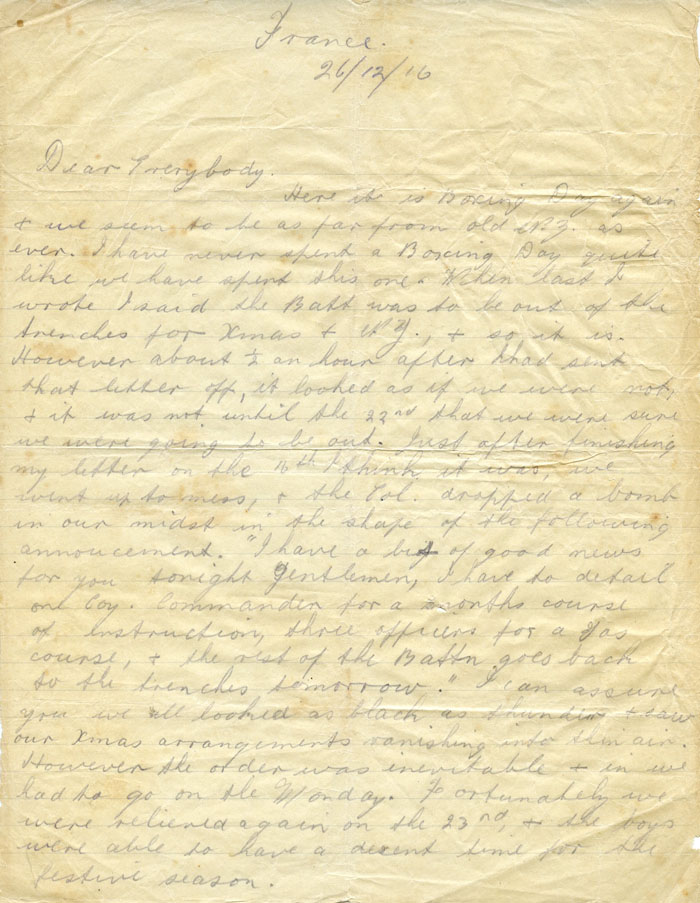 France.
26/12/16
Dear Everybody.
Here it is Boxing Day again
& we seem to be as far from old N.Z. as
ever. I have never spent a Boxing Day quite
like we have spent this one. When last I
wrote I said the Batt was to be out of the
trenches for Xmas & N.Y., & so it is.
However about ½ an hour after I had sent
that letter off, it looked as if we were not,
& it was not until the 22nd that we were sure
we were going to be out. Just after finishing
my letter on the 16th I think it was, we
went up to mess, & the Col. dropped a bomb
in our midst in the shape of the following
annoucement. "I have a bit of good news
for you tonight Gentlemen, I have to detail
one Coy. Commander for a months course
of Instruction, three officers for a Gas
course, & the rest of the Battn goes back
to the trenches tomorrow." I can assure
you we all looked as black as thunder & saw
our Xmas arrangements vanishing into thin air.
However the order was inevitable & in we
had to go on the Monday. Fortunately we
were relieved again on the 23rd, & the boys
were able to have a decent time for the
festive season.